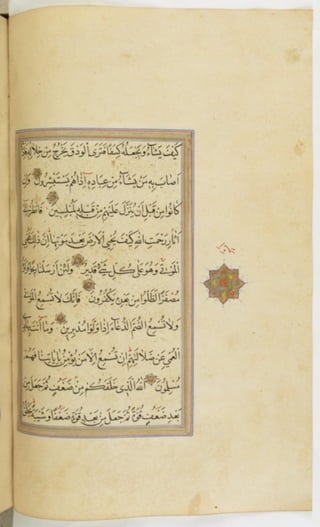 كَيْفَ يَشَاءُ وَيَجْعَلُهُ كِسَفًا فَتَرَى الْوَدْقَ يَخْرُجُ مِنْ خِلَالِهِ فَإِذَا
أَصَابَ بِهِ مَنْ يَشَاءُ مِنْ عِبَادِهِ إِذَا هُمْ يَسْتَبْشِرُونَ وَإِنْ
كَانُوا مِنْ قَبْلِ أَنْ يُنَزَّلَ عَلَيْهِمْ مِنْ قَبْلِهِ لَمُبْلِسِينَ فَانْظُرْ إِلَى
آثَارِ رَحْمَتِ اللَّهِ كَيْفَ يُحْيِي الْأَرْضَ بَعْدَ مَوْتِهَا إِنَّ ذَلِكَ لَمُحْيِي
الْمَوْتَى وَهُوَ عَلَى كُلِّ شَيْءٍ قَدِيرٌ وَلَئِنْ أَرْسَلْنَا رِيحًا فَرَأَوْهُ
مُصْفَرًّا لَظَلُّوا مِنْ بَعْدِهِ يَكْفُرُونَ فَإِنَّكَ لَا تُسْمِعُ الْمَوْتَى
وَلَا تُسْمِعُ الصُّمَّ الدُّعَاءَ إِذَا وَلَّوْا مُدْبِرِينَ وَمَا أَنْتَ بِهَادِ
الْعُمْيِ عَنْ ضَلَالَتِهِمْ إِنْ تُسْمِعُ إِلَّا مَنْ يُؤْمِنُ بِآيَاتِنَا فَهُمْ
مُسْلِمُونَ اللَّهُ الَّذِي خَلَقَكُمْ مِنْ ضَعْفٍ ثُمَّ جَعَلَ مِنْ
بَعْدِ ضَعْفٍ قُوَّةً ثُمَّ جَعَلَ مِنْ بَعْدِ قُوَّةٍ ضَعْفًا وَشَيْبَةً يَخْلُقُ